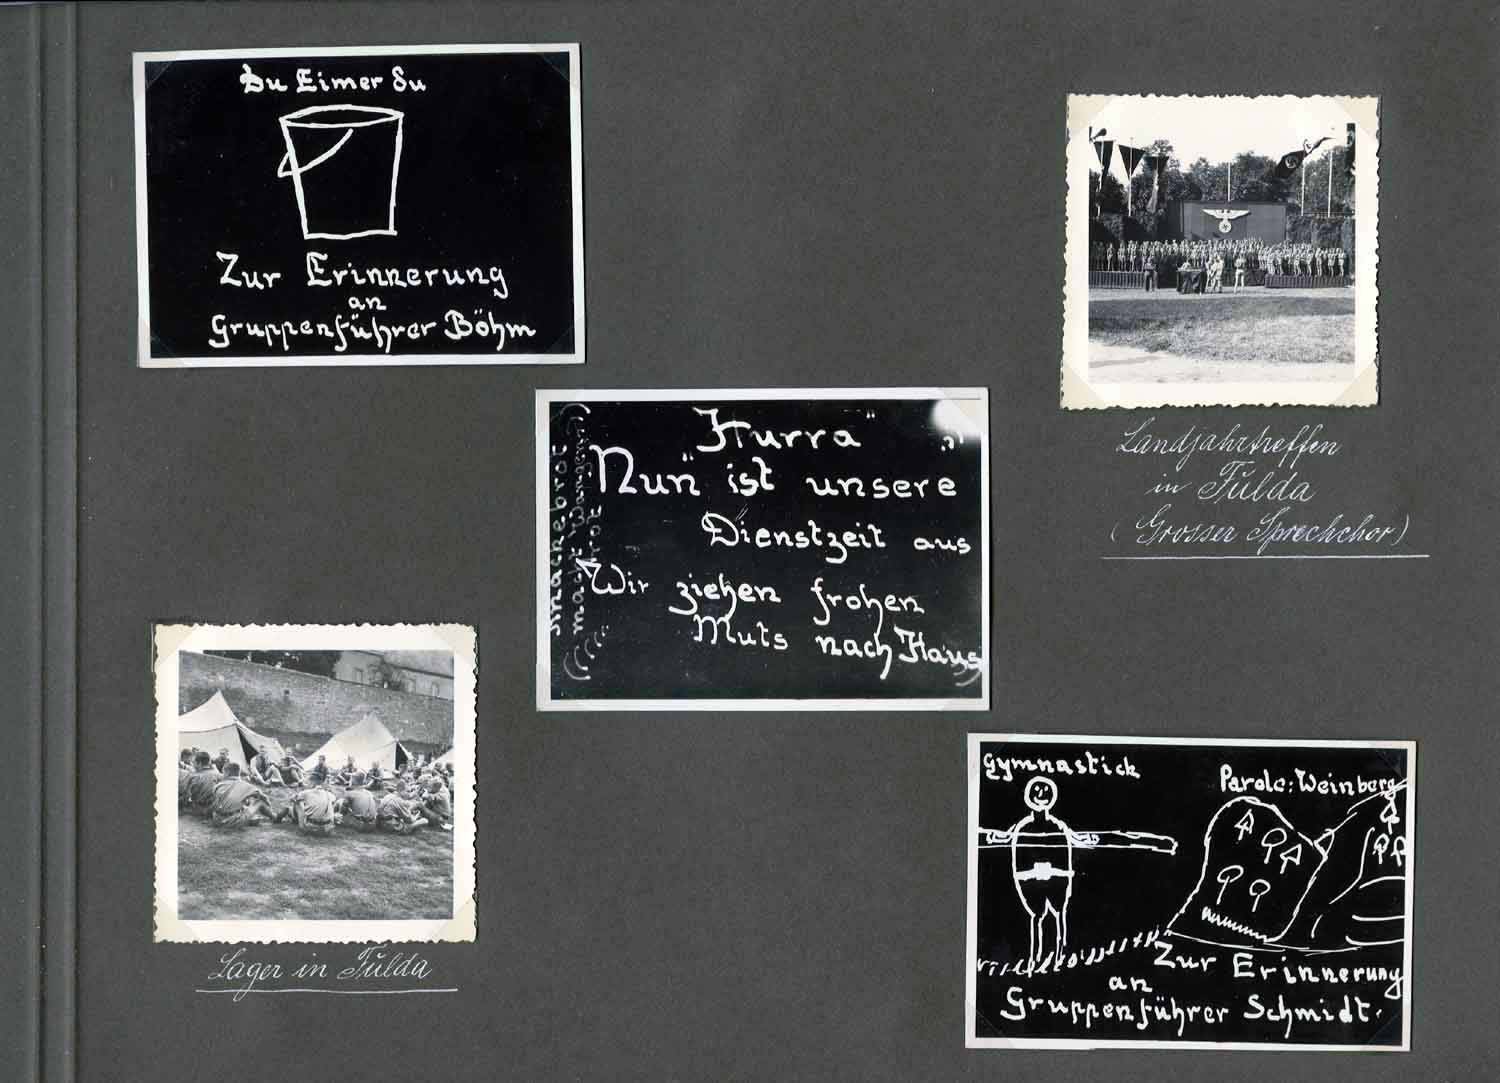 Du Eimer Du
Zur Erinnerung
an
Gruppenführer Böhm
Landjahrtreffen
in Fulda
(Grosser Sprechchor)
"Hurra"
Nun ist unsere
Dienstzeit aus
Wir ziehen frohen
Muts nach Haus
Knäckebrot
macht Wangen
rot
Lager in Fulda
Gymnastick
Parole: Weinberg
Zur Erinnerung
an
Gruppenführer Schmidt.